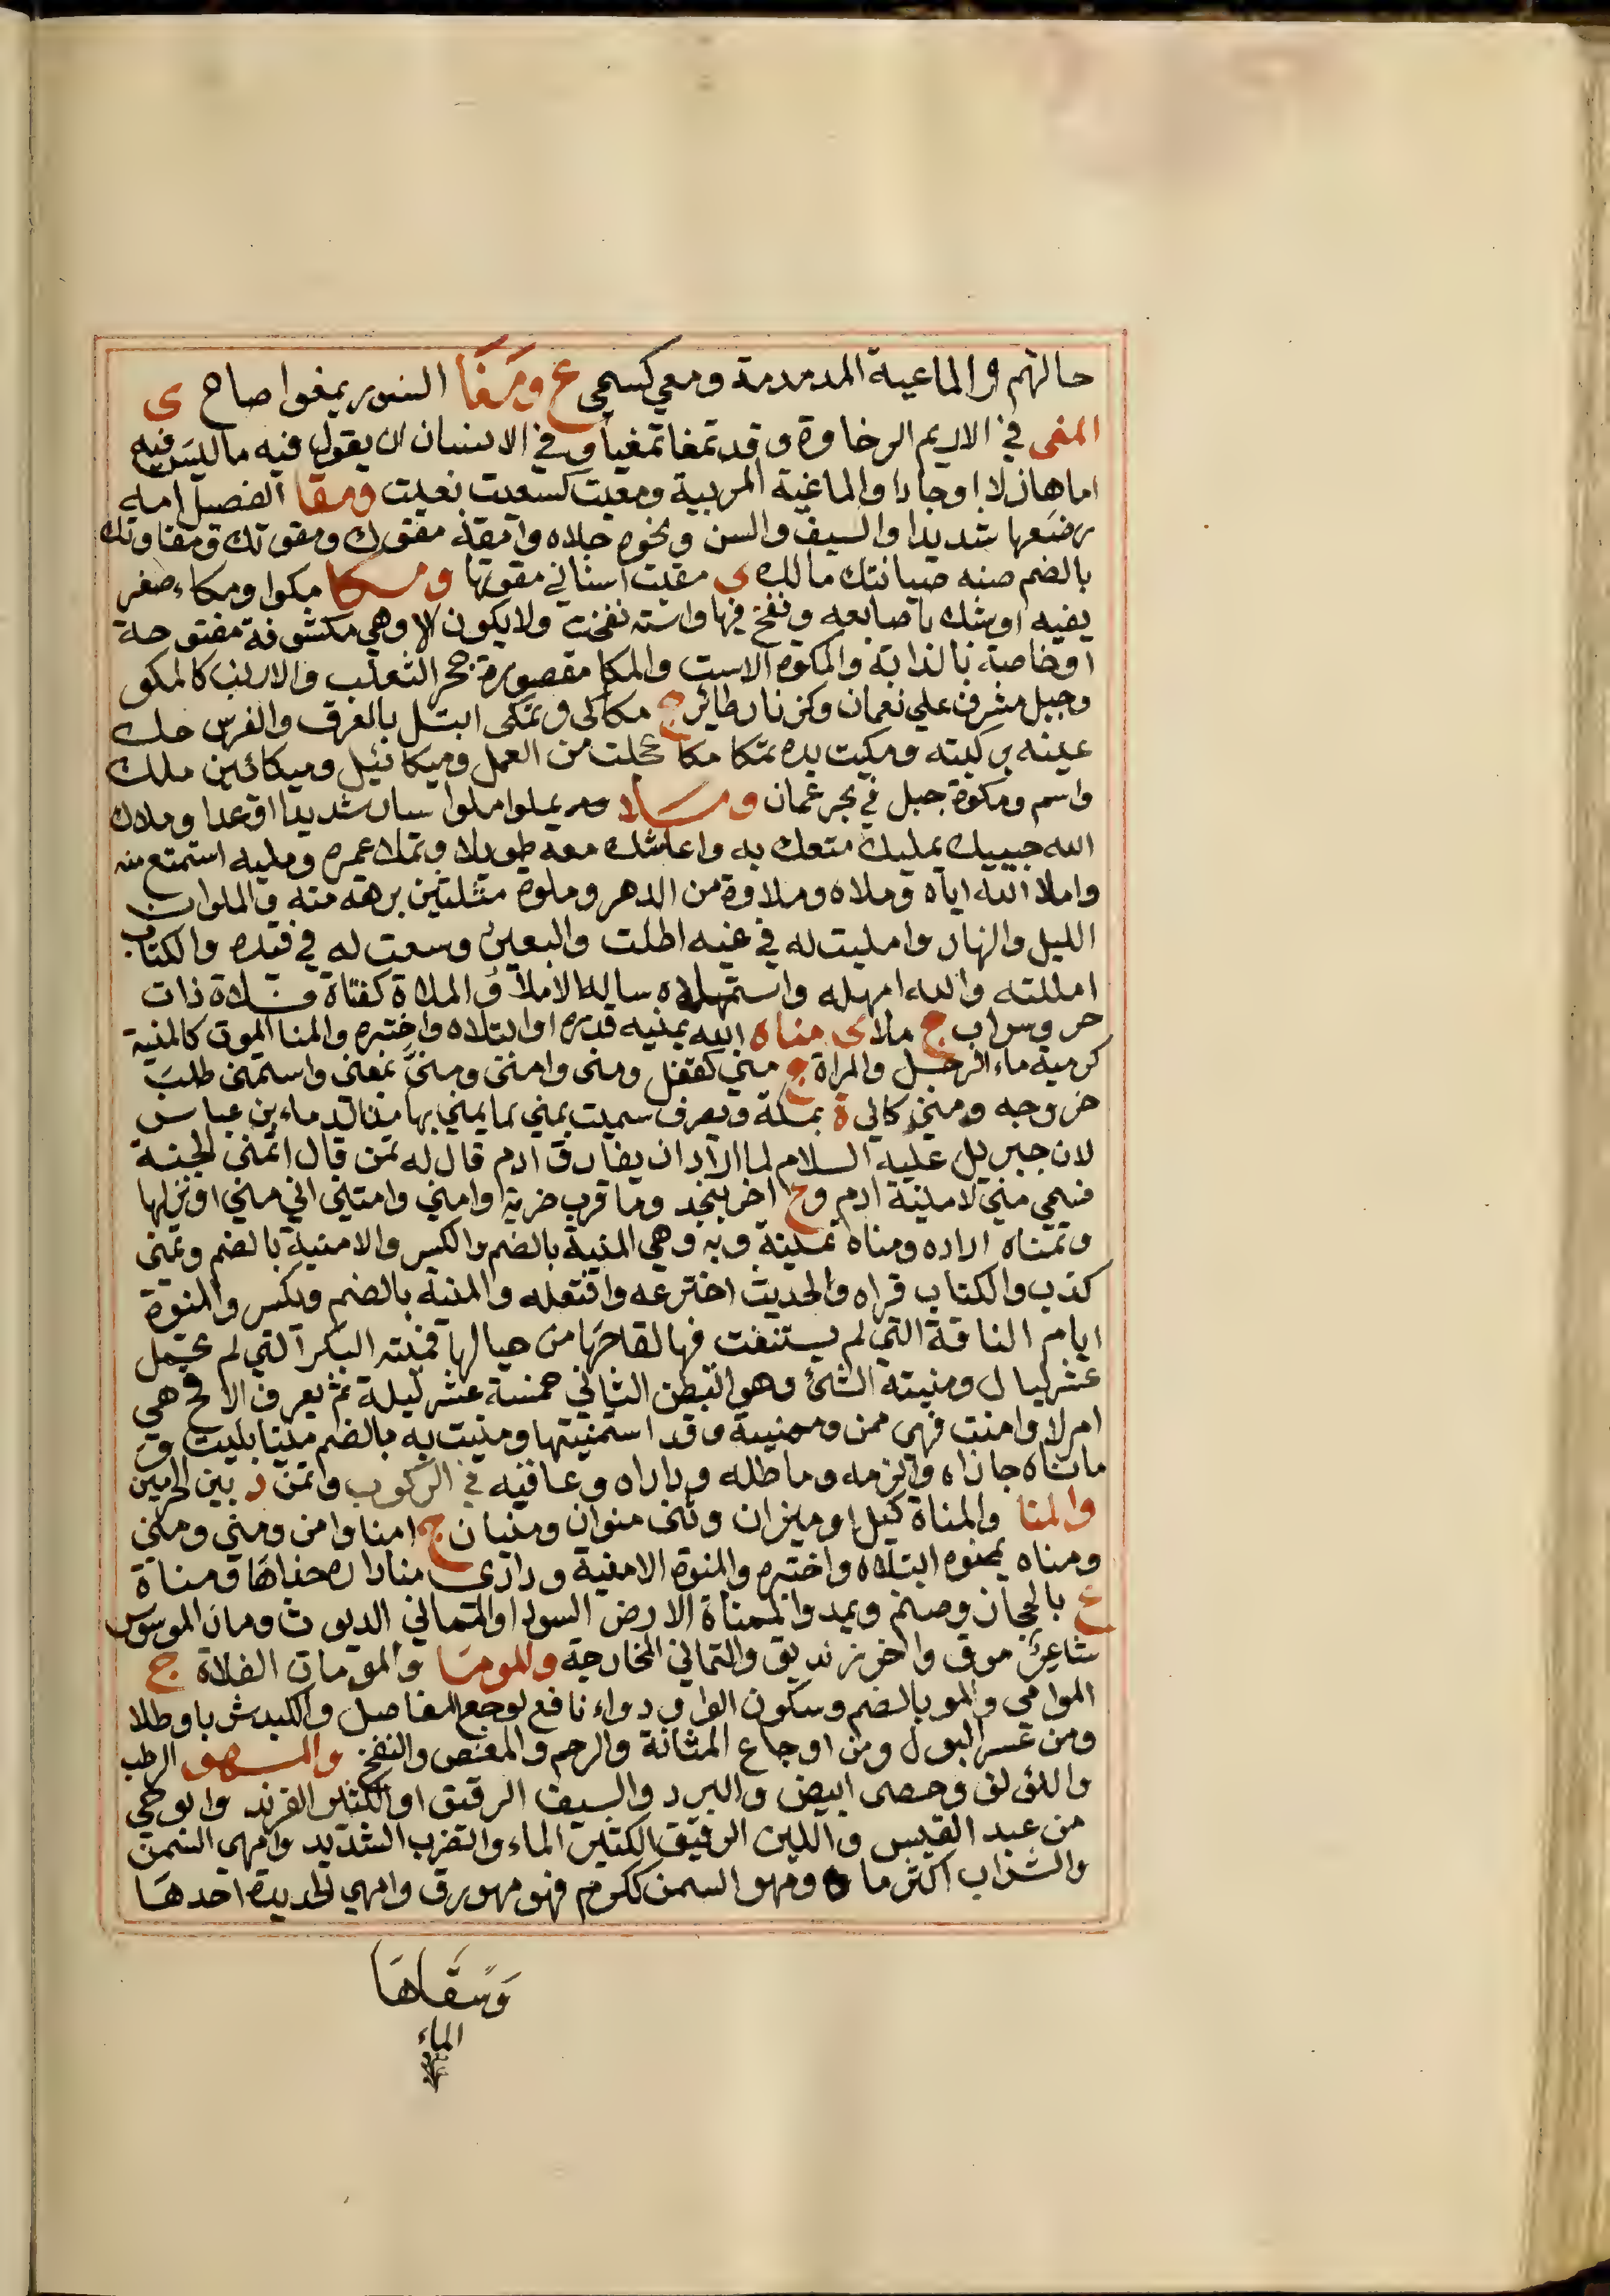 حالتهم و الماعية المدمدمة ومعي كسمي ع ومَغَا السنور يمغوا صاح ى
المغى في الاديم الرخاوة وقد تمغا تمغيا وفي الانسان ان يقول فيه ما ليس فيه
اما هازلا او جادا والماغية المربية ومغيت كسعيت نعيت ومقا الفصيل امه
رضعها شديدا والسيف والسن ونحوه جلاه وامقه مقوك ومقوتك ومقاوتك
بالضم صنه صيانتك مالك ى مقيت اسناني مقوتها ومكا مكوا ومكاء صفر
بفيه او شبك باصابعه ونفخ فيها واسته نفخت ولا يكون الا وهي مكشوفة مفتوحة
او خاصة بالدابة والمكوة الاست والمكا مقصورة جحر الثعلب والارنب كالمكو
وجبل مشرف علي نعمان وكزنار طائر ج مكاكى وتمكى ابتل بالعرق والفرس حك
عينه بركبته ومكيت يده تمكا مكا مجلت من العمل وميكائيل وميكائين ملك
واسم ومكوة جبل في بحر عمان وملا يملوا ملوا سار شديدا او عدا وملاك
الله حبيبك تمليك متعك به واعاشك معه طويلا وتملا عمره ومليه استمتع منه
واملا الله اياه وملاه وملاوة من الدهر وملوة مثلثين برهة منه والملوان
الليل والنهار وامليت له في غيه اطلت والبعير وسعت له في قيده والكتاب
امللته والله امهله واستملاه ساله الاملا والملاة كفتاة فلاة ذات
حر وسراب ج ملاى مناه الله يمنيه قدره او ابتلاه واختبره والمنا الموت كالمنية
كرمية ماء الرجل والمراة ج مني كقفل ومنى وامنى ومنىّ بمعنى واستمنى طلب
خروجه ومنى كالى ة بمكة وتصرف سميت بمني لما يمني بها من الدماء بن عباس
لان جبريل عليه السلام لما اراد ان يفارق ادم قال له تمن قال اتمنى الجنة
فسمي منى لامنية ادم و ع اخر بنجد وما قرب ضرية وامني وامتنى اتي مني او نزلها
وتمناه اراده ومناه تمنية وبه وهي المنية بالضم والكسر والامنية بالضم وتمنى
كذب والكتاب قراه والحديث اخترعه وافتعله والمنية بالضم ويكسر والمنوة
ايام الناقة التي لم يستنفت فيها لقاحها من حيالها فمنيته البكر التي لم تحمل
عشر ليال ومنيته الثنى وهو البطن الثاني خمسة عشر ليلة ثم يعرف الاقح هي
ام لا وامنت فهي ممن وممنية وقد استمنيتها ومنيت به بالضم منيا بليت و
ماناه جازاه والزمه وماطله وداراه وعاقبه في الركوب وتمن د بين الحرمين
والمنا والمناة كيل او ميزان وثنى منوان ومنيان ج امنا وامن ومني ومنى
ومناه يمنوه ابتلاه واختبره والمنوة الامنية ودارى منا داره حذاها ومناة
ع بالحجاز وصنم ويمد والممناة الارض السودا والتماني الديوث ومان الموسوس
شاعر موق واخر زنديق والتماني المخارجة والموما والموماة الفلاة ج
الموامي والمو بالضم وسكون الواو دواء نافع لوجع المفاصل والكبد شربا وطلا
ومن عسر البول ومن اوجاع المثانة والرحم والمغص والنفخ والمهو الرطب
واللؤلؤ وحصى ابيض والبرد والسيف الرقيق او الكثير الفرند وابو حي
من عبد القيس واللبن الرقيق الكثير الماء والضرب الشديد وامهي السمن
والشراب اكثر ماه ومهو السمن ككرم فهو مهو رق وامهي الحديدة احدها
وَسَقَاهَا
الماء